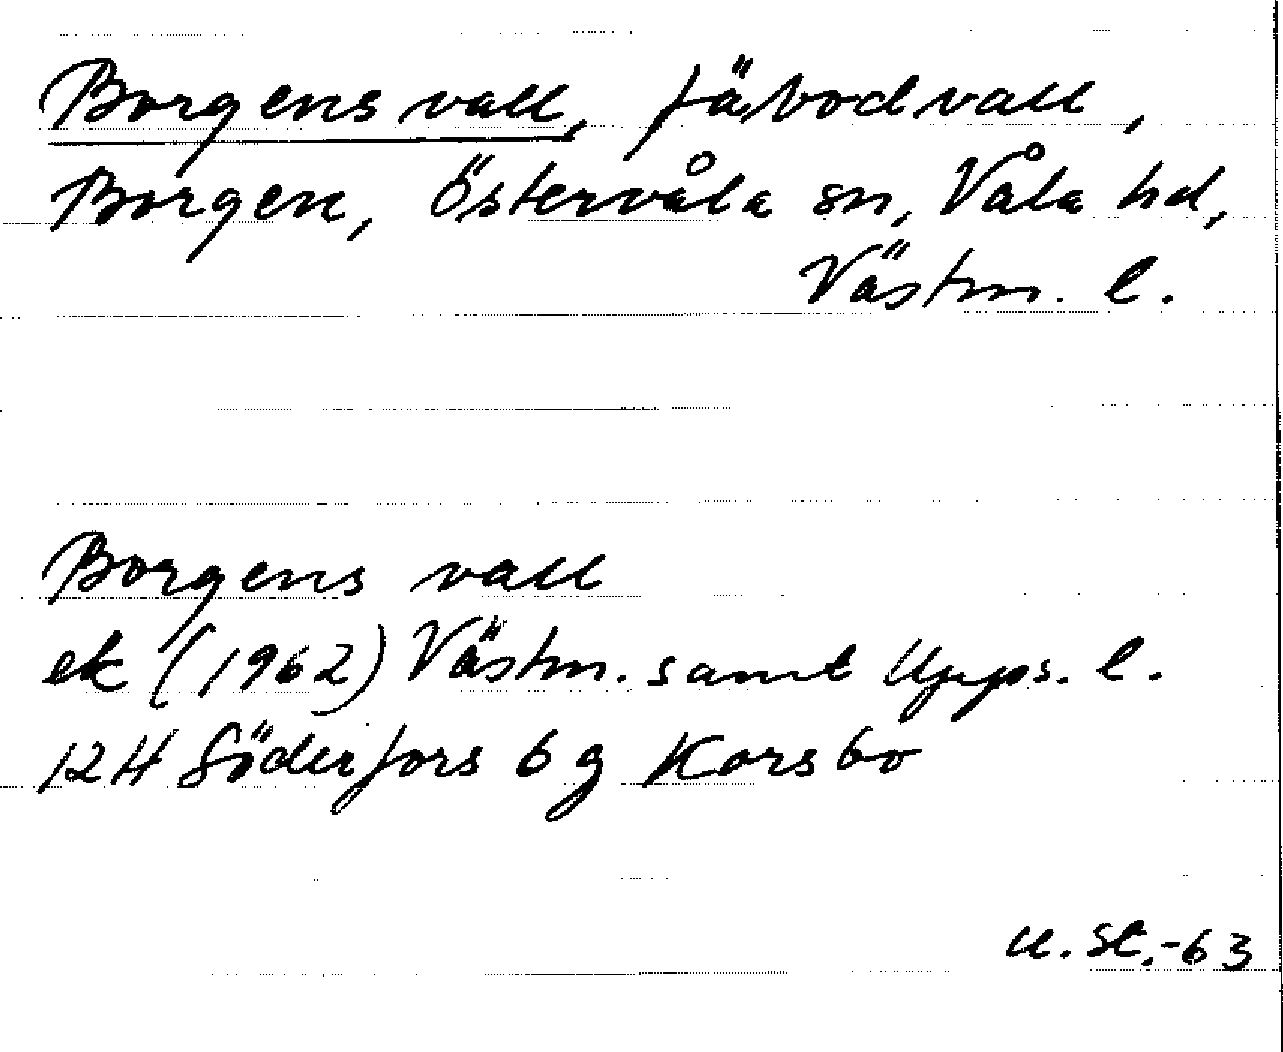 Borgens vall, fäbodvall,
Borgen, Östervåla sn, Våla hd,
Västm. l.
Borgens vall
ek (1962) Västm. samt Upps. l.
12H Söderfors 6g Korsbo
U. St.-63